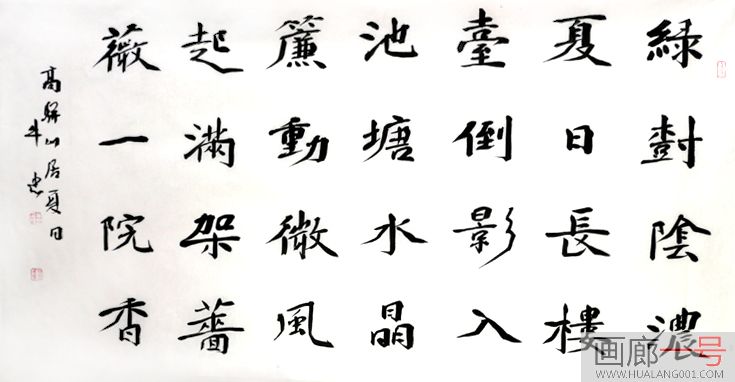 綠對陰濃
夏日長樓
臺倒影入
池塘水晶
簾動微風
起滿架薔
薇一院香
高駢山居夏日
画廊一号
WWW.HUALANG001.COM